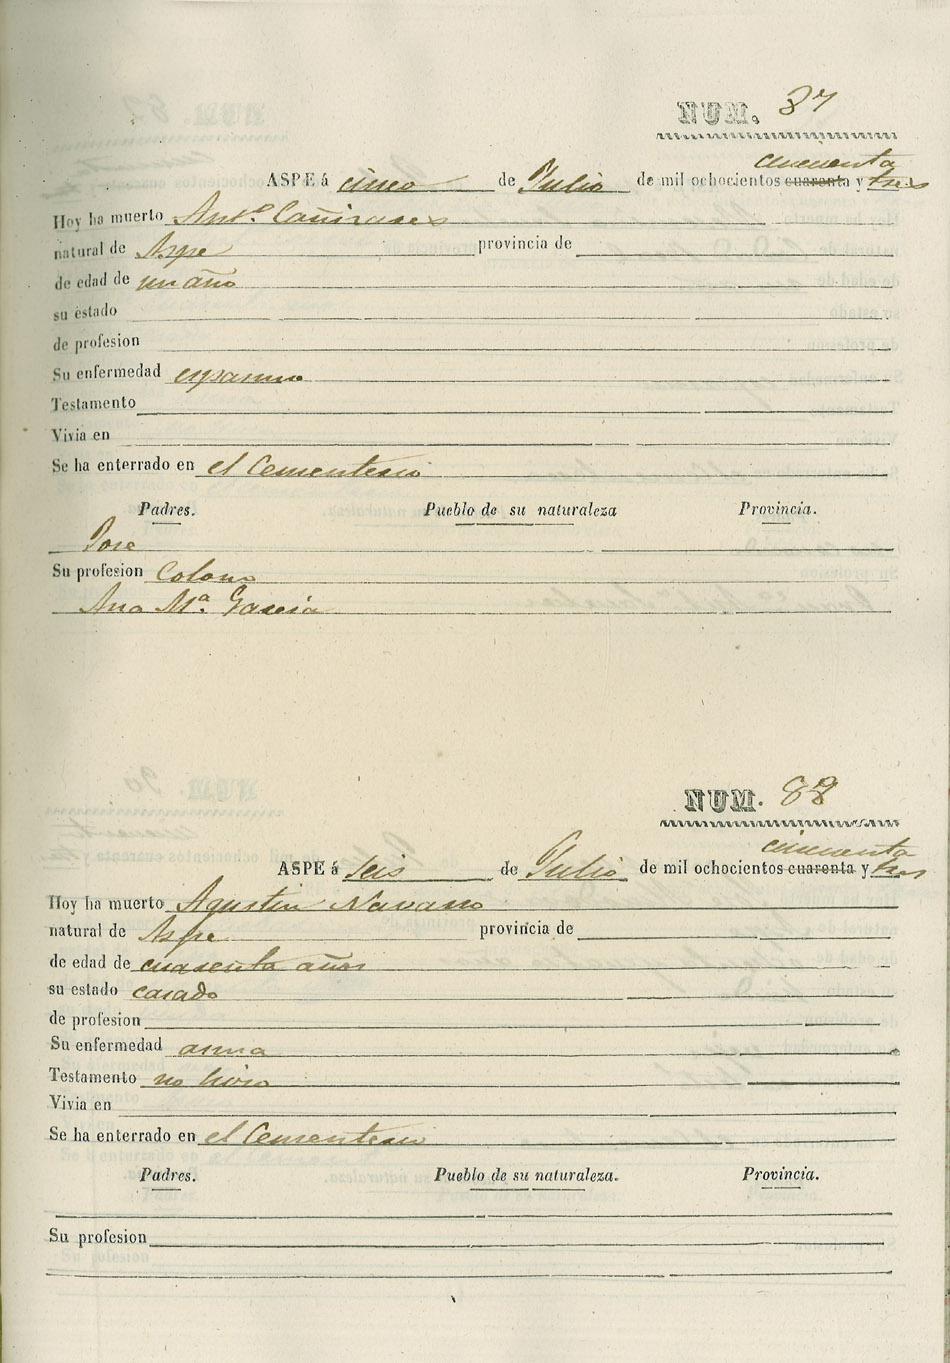 NUM. 87
cincuenta
ASPE á cinco de Julio de mil ochocientos cuarenta y tres
Hoy ha muerto Antº Cañizares
natural de Aspe provincia de
de edad de un año
su estado
de profesion
Su enfermedad espasmo
Testamento
Vivia en
Se ha enterrado en el Cementerio
Padres. Pueblo de su naturaleza Provincia.
Jose
Su profesion Colono
Ana Mª Garcia
NUM. 88
cincuenta
ASPE á seis de Julio de mil ochocientos cuarenta y tres
Hoy ha muerto Agustin Navarro
natural de Aspe provincia de
de edad de cuarenta años
su estado casado
de profesion
Su enfermedad asma
Testamento no hizo
Vivia en
Se ha enterrado en el Cementerio
Padres. Pueblo de su naturaleza. Provincia.
Su profesion